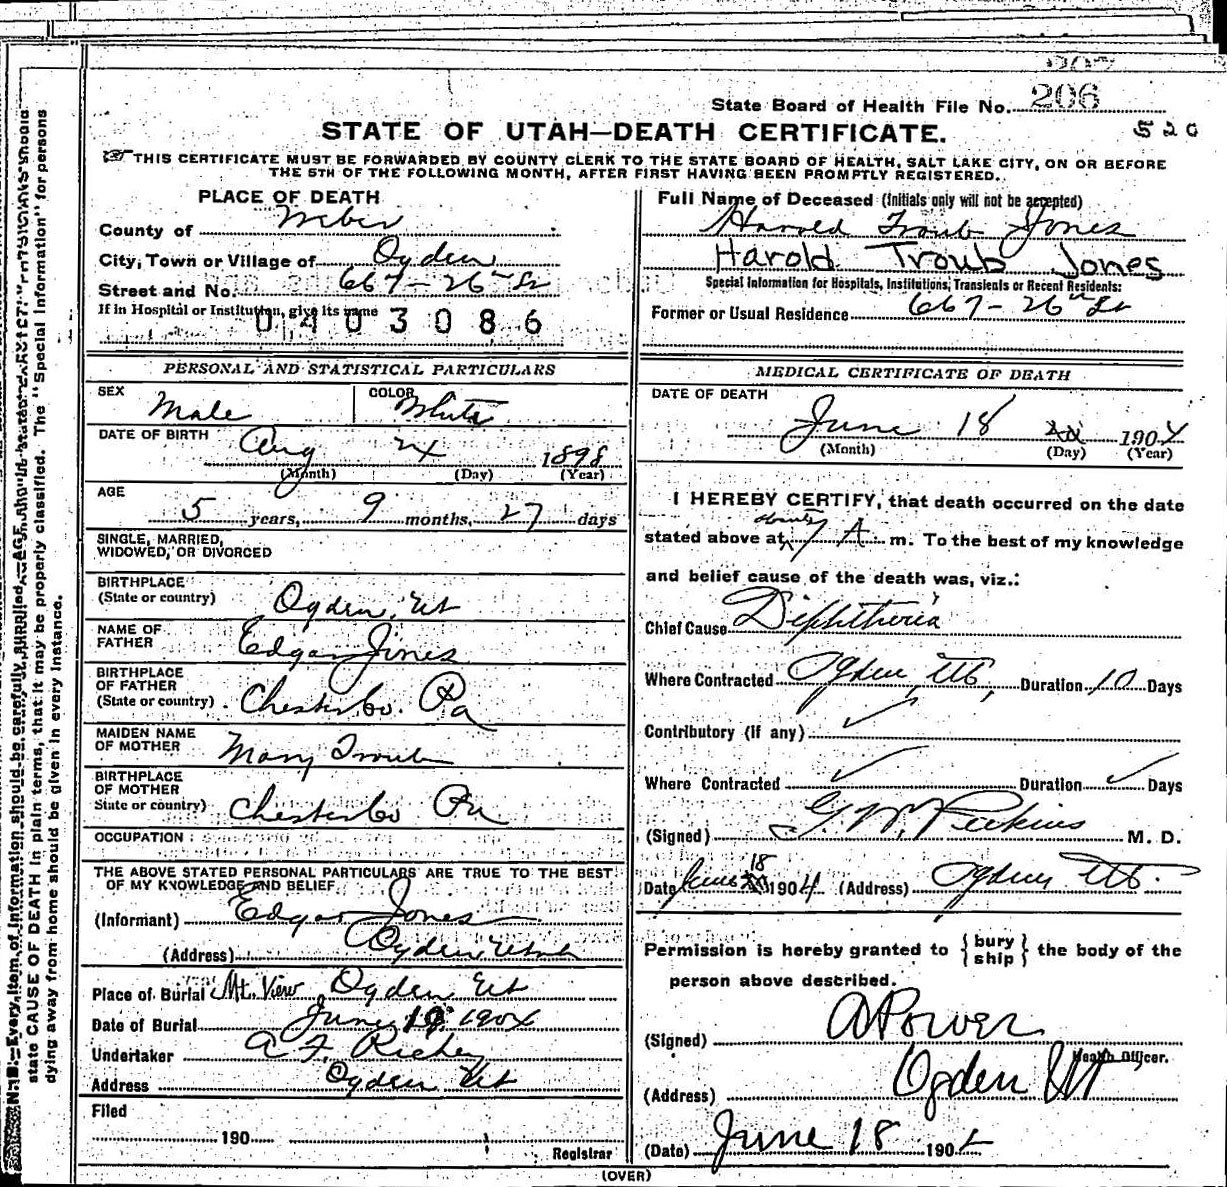 206
State Board of Health File No. 206
STATE OF UTAH—DEATH CERTIFICATE.
520
THIS CERTIFICATE MUST BE FORWARDED BY COUNTY CLERK TO THE STATE BOARD OF HEALTH, SALT LAKE CITY, ON OR BEFORE
THE 5TH OF THE FOLLOWING MONTH, AFTER FIRST HAVING BEEN PROMPTLY REGISTERED.
PLACE OF DEATH
County of Weber
City, Town or Village of Ogden
Street and No. 667-26th St
If in Hospital or Institution, give its name
0403086
Full Name of Deceased (Initials only will not be accepted)
Harold Troub Jones
Harold Troub Jones
Special Information for Hospitals, Institutions, Transients or Recent Residents:
Former or Usual Residence 667-26th St
PERSONAL AND STATISTICAL PARTICULARS
SEX Male COLOR White
DATE OF BIRTH Aug 24 1898
(Month) (Day) (Year)
AGE
5 years, 9 months, 27 days
SINGLE, MARRIED,
WIDOWED, OR DIVORCED
BIRTHPLACE
(State or country) Ogden, Ut
NAME OF
FATHER Edgar Jones
BIRTHPLACE
OF FATHER
(State or country) Chester Co. Pa
MAIDEN NAME
OF MOTHER Mary Troub
BIRTHPLACE
OF MOTHER
State or country) Chester Co Pa
OCCUPATION
THE ABOVE STATED PERSONAL PARTICULARS ARE TRUE TO THE BEST
OF MY KNOWLEDGE AND BELIEF
(Informant) Edgar Jones
(Address) Ogden Utah
Place of Burial Mt. View Ogden Ut
Date of Burial June 19 1904
Undertaker A F. Richey
Address Ogden Ut
Filed
190
Registrar
MEDICAL CERTIFICATE OF DEATH
DATE OF DEATH
June 18 1904
(Month) (Day) (Year)
I HEREBY CERTIFY, that death occurred on the date
stated above at about 7 A m. To the best of my knowledge
and belief cause of the death was, viz.:
Chief Cause Diphtheria
Where Contracted Ogden, Ut, Duration 10 Days
Contributory (if any) ✓
Where Contracted ✓ Duration ✓ Days
(Signed) G. W. Perkins M. D.
Date June 18 1904 (Address) Ogden Ut.
Permission is hereby granted to {bury
ship} the body of the
person above described.
(Signed) A Power
Health Officer.
(Address) Ogden Ut
(Date) June 18 1904
(OVER)
N. B.—Every item of information should be carefully supplied. AGE should be stated EXACTLY.
state CAUSE OF DEATH in plain terms, that it may be properly classified. The "Special Information" for persons
dying away from home should be given in every instance.